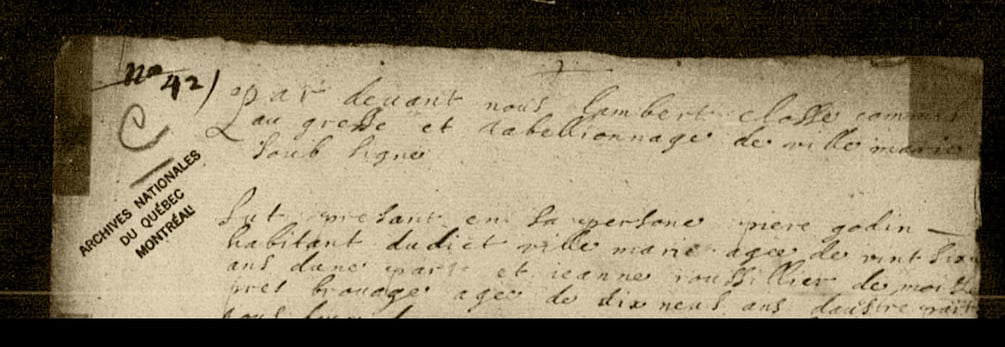 No 42)
C
ARCHIVES NATIONALES
DU QUÉBEC
MONTRÉAL
par devant nous lambert closse commis
au greffe et tabellionnage de ville marie
soub signe
fut presant en sa persone piere godin
habitant dudict ville marie agee de vint six
ans dune part et ieanne roussillier de moise
pres brouage agee de dix neuf ans daustre part